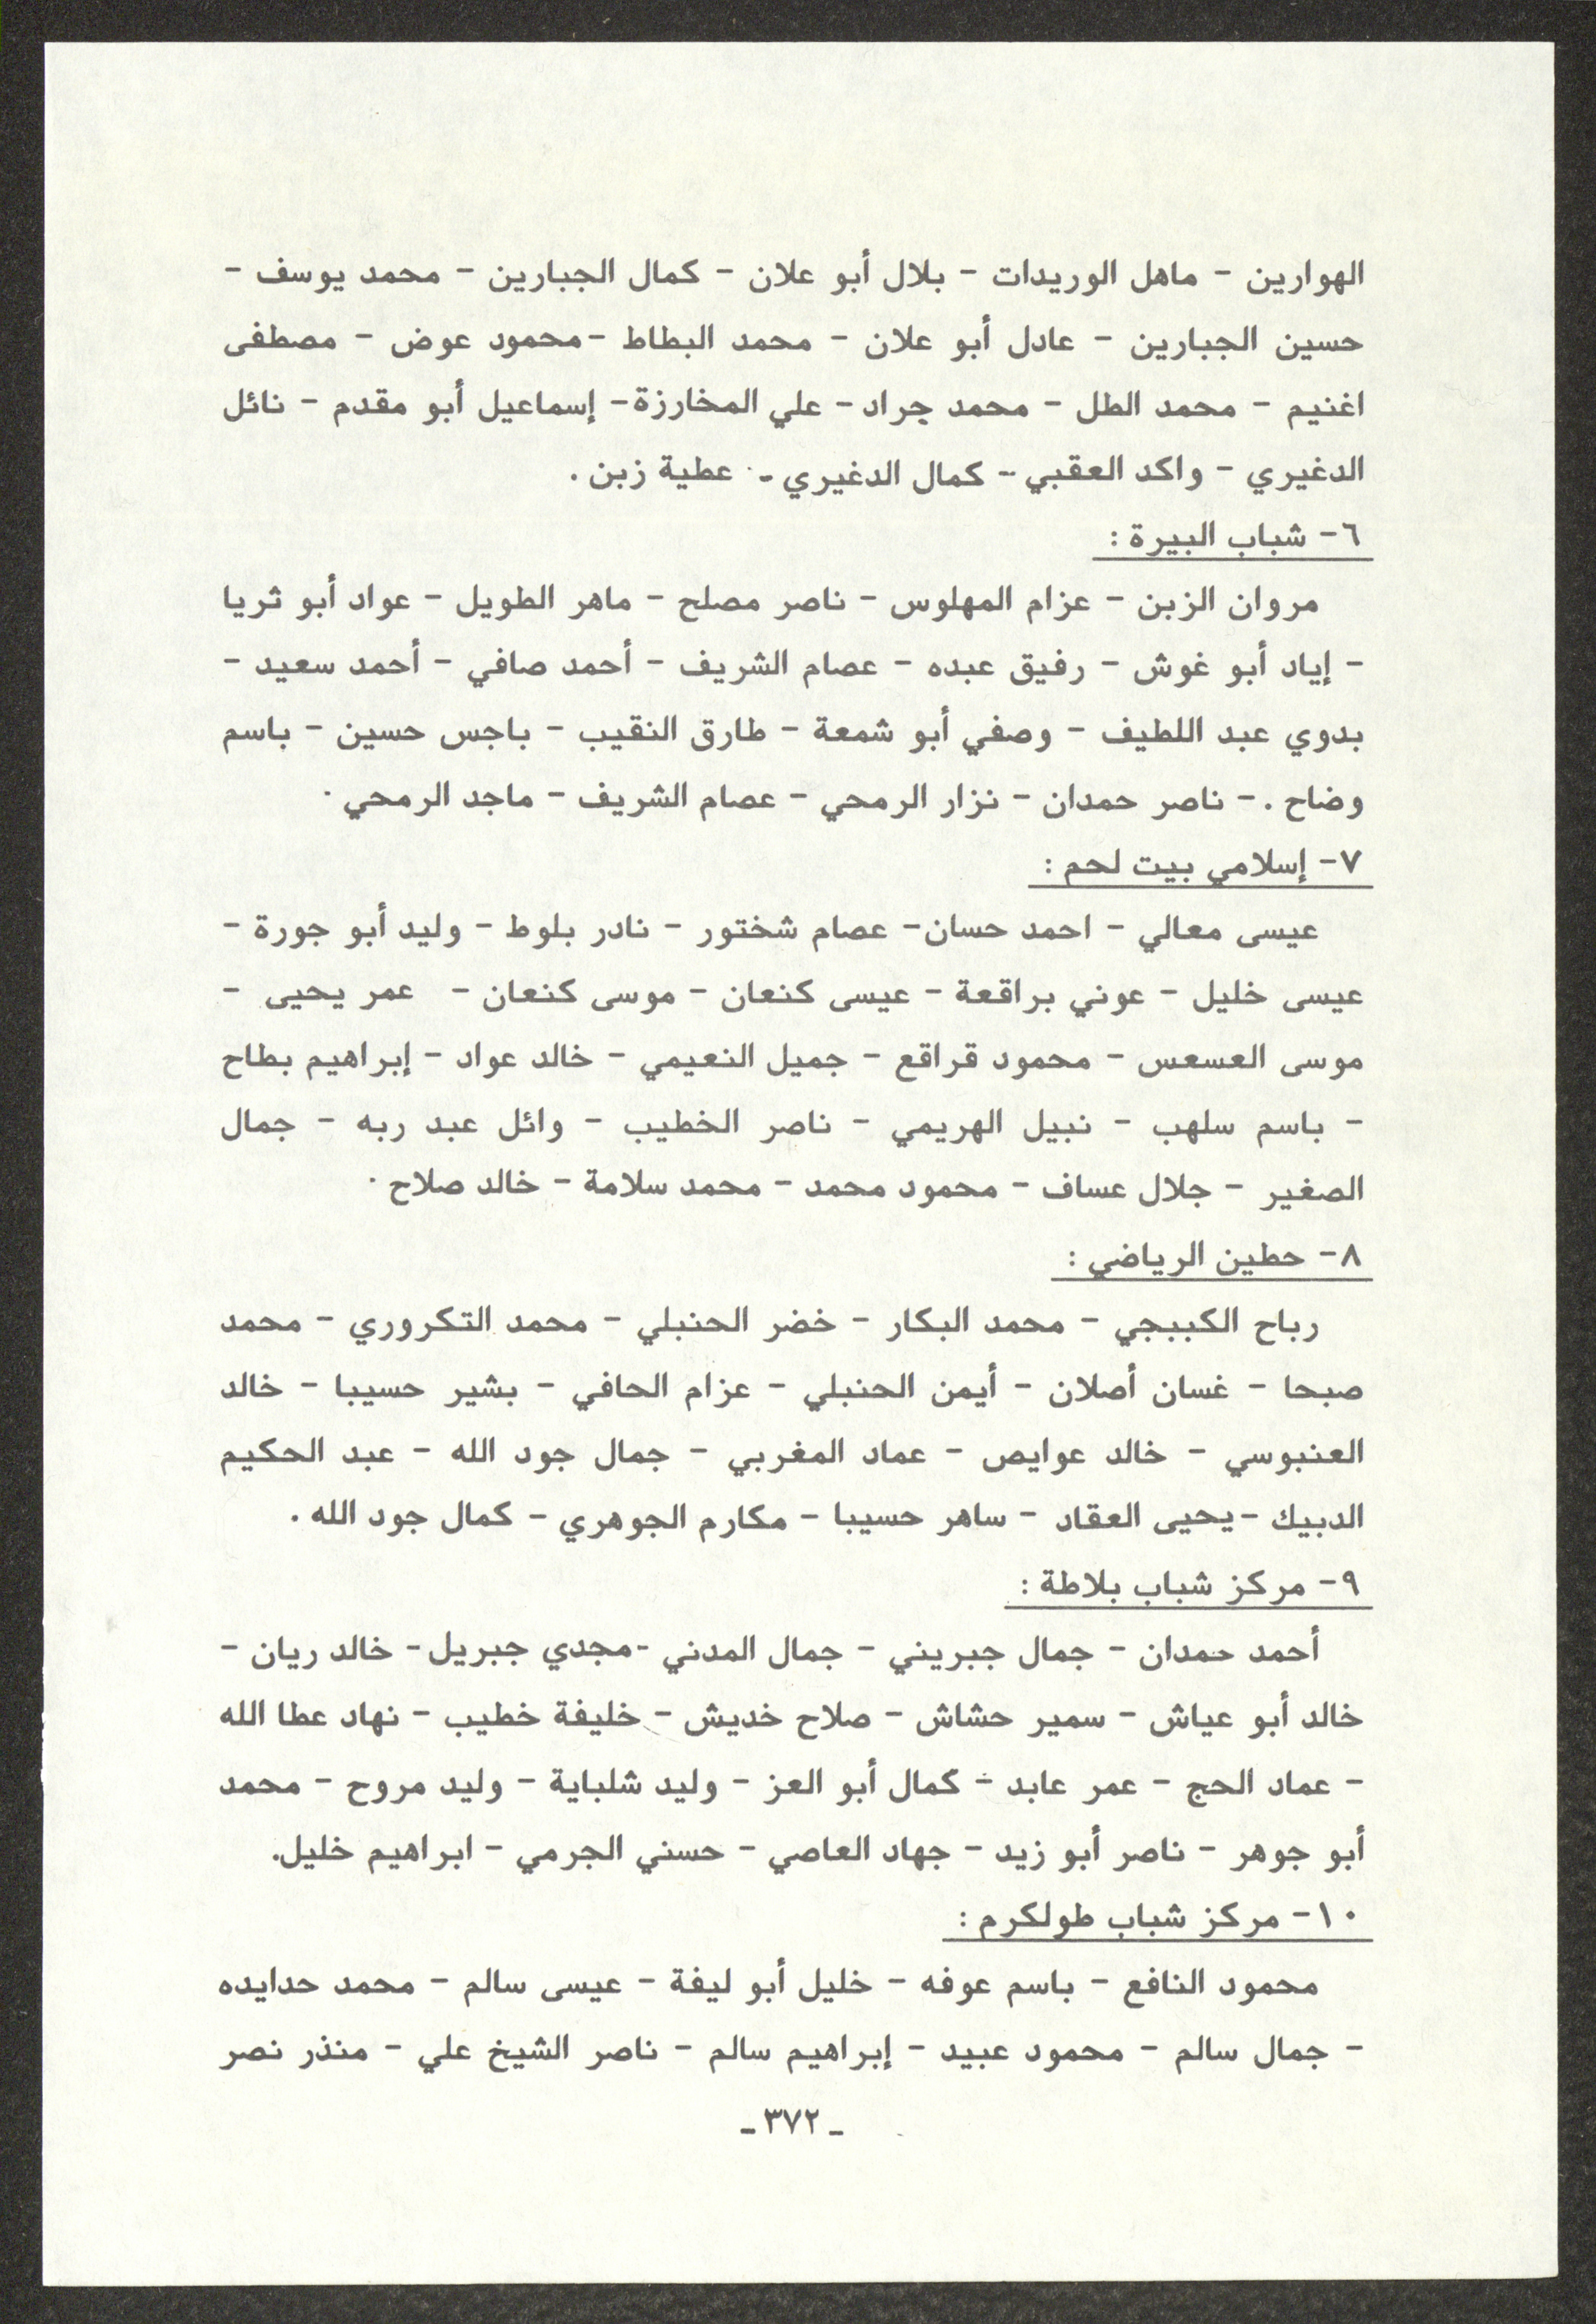 الهوارين - ماهل الوريدات - بلال أبو علان - كمال الجبارين - محمد يوسف -
حسين الجبارين - عادل أبو علان - محمد البطاط -محمود عوض - مصطفى
اغنيم - محمد الطل - محمد جراد - علي المخارزة - إسماعيل أبو مقدم - نائل
الدغيري - واكد العقبي - كمال الدغيري - عطية زبن .
٦- شباب البيرة :
مروان الزبن - عزام المهلوس - ناصر مصلح - ماهر الطويل - عواد أبو ثريا
- إياد أبو غوش - رفيق عبده - عصام الشريف - أحمد صافي - أحمد سعيد -
بدوي عبد اللطيف - وصفي أبو شمعة - طارق النقيب - باجس حسين - باسم
وضاح . - ناصر حمدان - نزار الرمحي - عصام الشريف - ماجد الرمحي .
٧- إسلامي بيت لحم :
عيسى معالي - احمد حسان- عصام شختور - نادر بلوط - وليد أبو جورة -
عيسى خليل - عوني براقعة - عيسى كنعان - موسى كنعان - عمر يحيى -
موسى العسعس - محمود قراقع - جميل النعيمي - خالد عواد - إبراهيم بطاح
- باسم سلهب - نبيل الهريمي - ناصر الخطيب - وائل عبد ربه - جمال
الصغير - جلال عساف - محمود محمد - محمد سلامة - خالد صلاح .
٨- حطين الرياضي :
رباح الكببجي - محمد البكار - خضر الحنبلي - محمد التكروري - محمد
صبحا - غسان أصلان - أيمن الحنبلي - عزام الحافي - بشير حسيبا - خالد
العنبوسي - خالد عوايص - عماد المغربي - جمال جود الله - عبد الحكيم
الدبيك -يحيى العقاد - ساهر حسيبا - مكارم الجوهري - كمال جود الله .
٩- مركز شباب بلاطة :
أحمد حمدان - جمال جبريني - جمال المدني -مجدي جبريل- خالد ريان -
خالد أبو عياش - سمير حشاش - صلاح خديش - خليفة خطيب - نهاد عطا الله
- عماد الحج - عمر عابد - كمال أبو العز - وليد شلباية - وليد مروح - محمد
أبو جوهر - ناصر أبو زيد - جهاد العاصي - حسني الجرمي - ابراهيم خليل.
١٠- مركز شباب طولكرم :
محمود النافع - باسم عوفه - خليل أبو ليفة - عيسى سالم - محمد حدايده
- جمال سالم - محمود عبيد - إبراهيم سالم - ناصر الشيخ علي - منذر نصر
- ٣٧٢ -